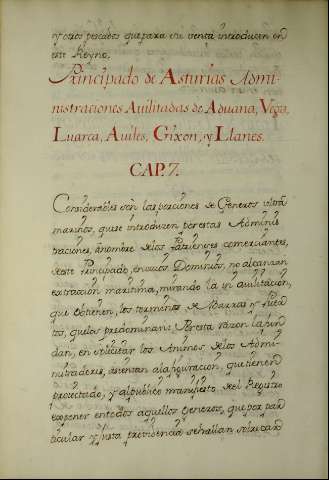 y otros pescados que para su venta introducen en
este Reyno,
Principado de Asturias Admi-
nistraciones Avilitadas de Aduana, Vega,
Luarca, Aviles, Gixon, y Llanes.
CAP. 7.
Considerables son las porciones de Generos ultra
marinos, que se introducen por estas Adminis
traciones, a nombre de los Patziences comerciantes,
deste Principado, en cuios Dominios, no alcanzan
extraccion maritima, mirando la in avilitacion,
que obtienen, los terminos de Barras y Puer
tos, que los predominan: Por esta razon la fun
dan, en solicitar los Animos de los Admi-
nistradores, asientan ala figuracion, que tienen
proiectada, y al publico manifiesto del Registro
exponer en todos aquellos Generos, que por par
ticular y justa providencia se hallan,